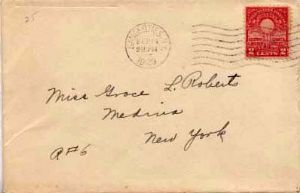 25
1929
2 2
Miss Grace L. Roberts
Medina
New York
R#6